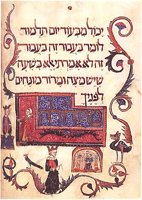 יכול מבעוד יום תלמוד
לומר בעבור זה בעבור
זה לא אמרתי אלא בשעה
שיש מצה ומרור מונחים
לפניך